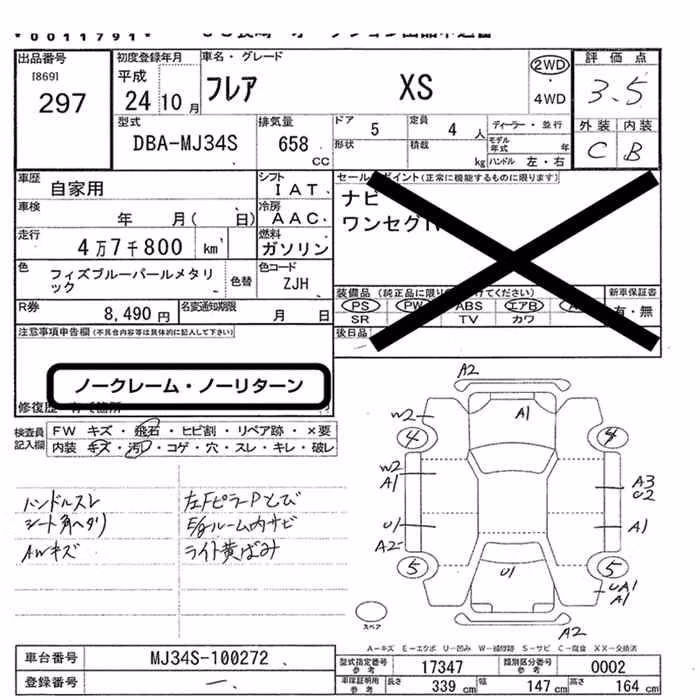 0011791
出品番号
[869]
297
初度登録年月
平成
24年10月
車名・グレード
フレア XS
2WD
・
4WD
評価点
3.5
外装 内装
C B
型式
DBA-MJ34S
排気量
658
CC
ドア 5
定員 4 人
形状
積載 kg
ディーラー・並行
モデル年式 年
ハンドル 左・右
車歴
自家用
シフト
IAT
車検
年 月( 日)
冷房
AAC
走行
4万7千800 km
燃料
ガソリン
色
フィズブルーパールメタリ
ック
色替
色コード
ZJH
R券
8,490円
名変通知期限
月 日
セールスポイント(正常に機能するものに限ります)
ナビ
ワンセグTV
装備品
PS PW ABS エアB
SR TV カワ
新車保証書
有・無
後日品
注意事項申告欄(不具合内容等は具体的に記入して下さい)
ノークレーム・ノーリターン
修復歴
検査員
記入欄
FW キズ・飛石・ヒビ割・リペア跡・×要
内装 キズ・汚れ・コゲ・穴・スレ・キレ・破レ
ハンドルスレ
シート角ヘタリ
AWキズ
左FピラーPとび
ルーム内サビ
ライト黄ばみ
A2
W2
A1
4
4
W2
A1
A3
U2
U1
A2
A1
5
5
U1
UA1
A1
A2
スペア
A-キズ E-エクボ U-凹み W-補修跡 S-サビ C-腐食 XX-交換済
車台番号
MJ34S-100272
登録番号
型式指定番号
参考
17347
類別区分番号
参考
0002
車庫証明用
参考
長さ 339 cm
幅 147 cm
高さ 164 cm